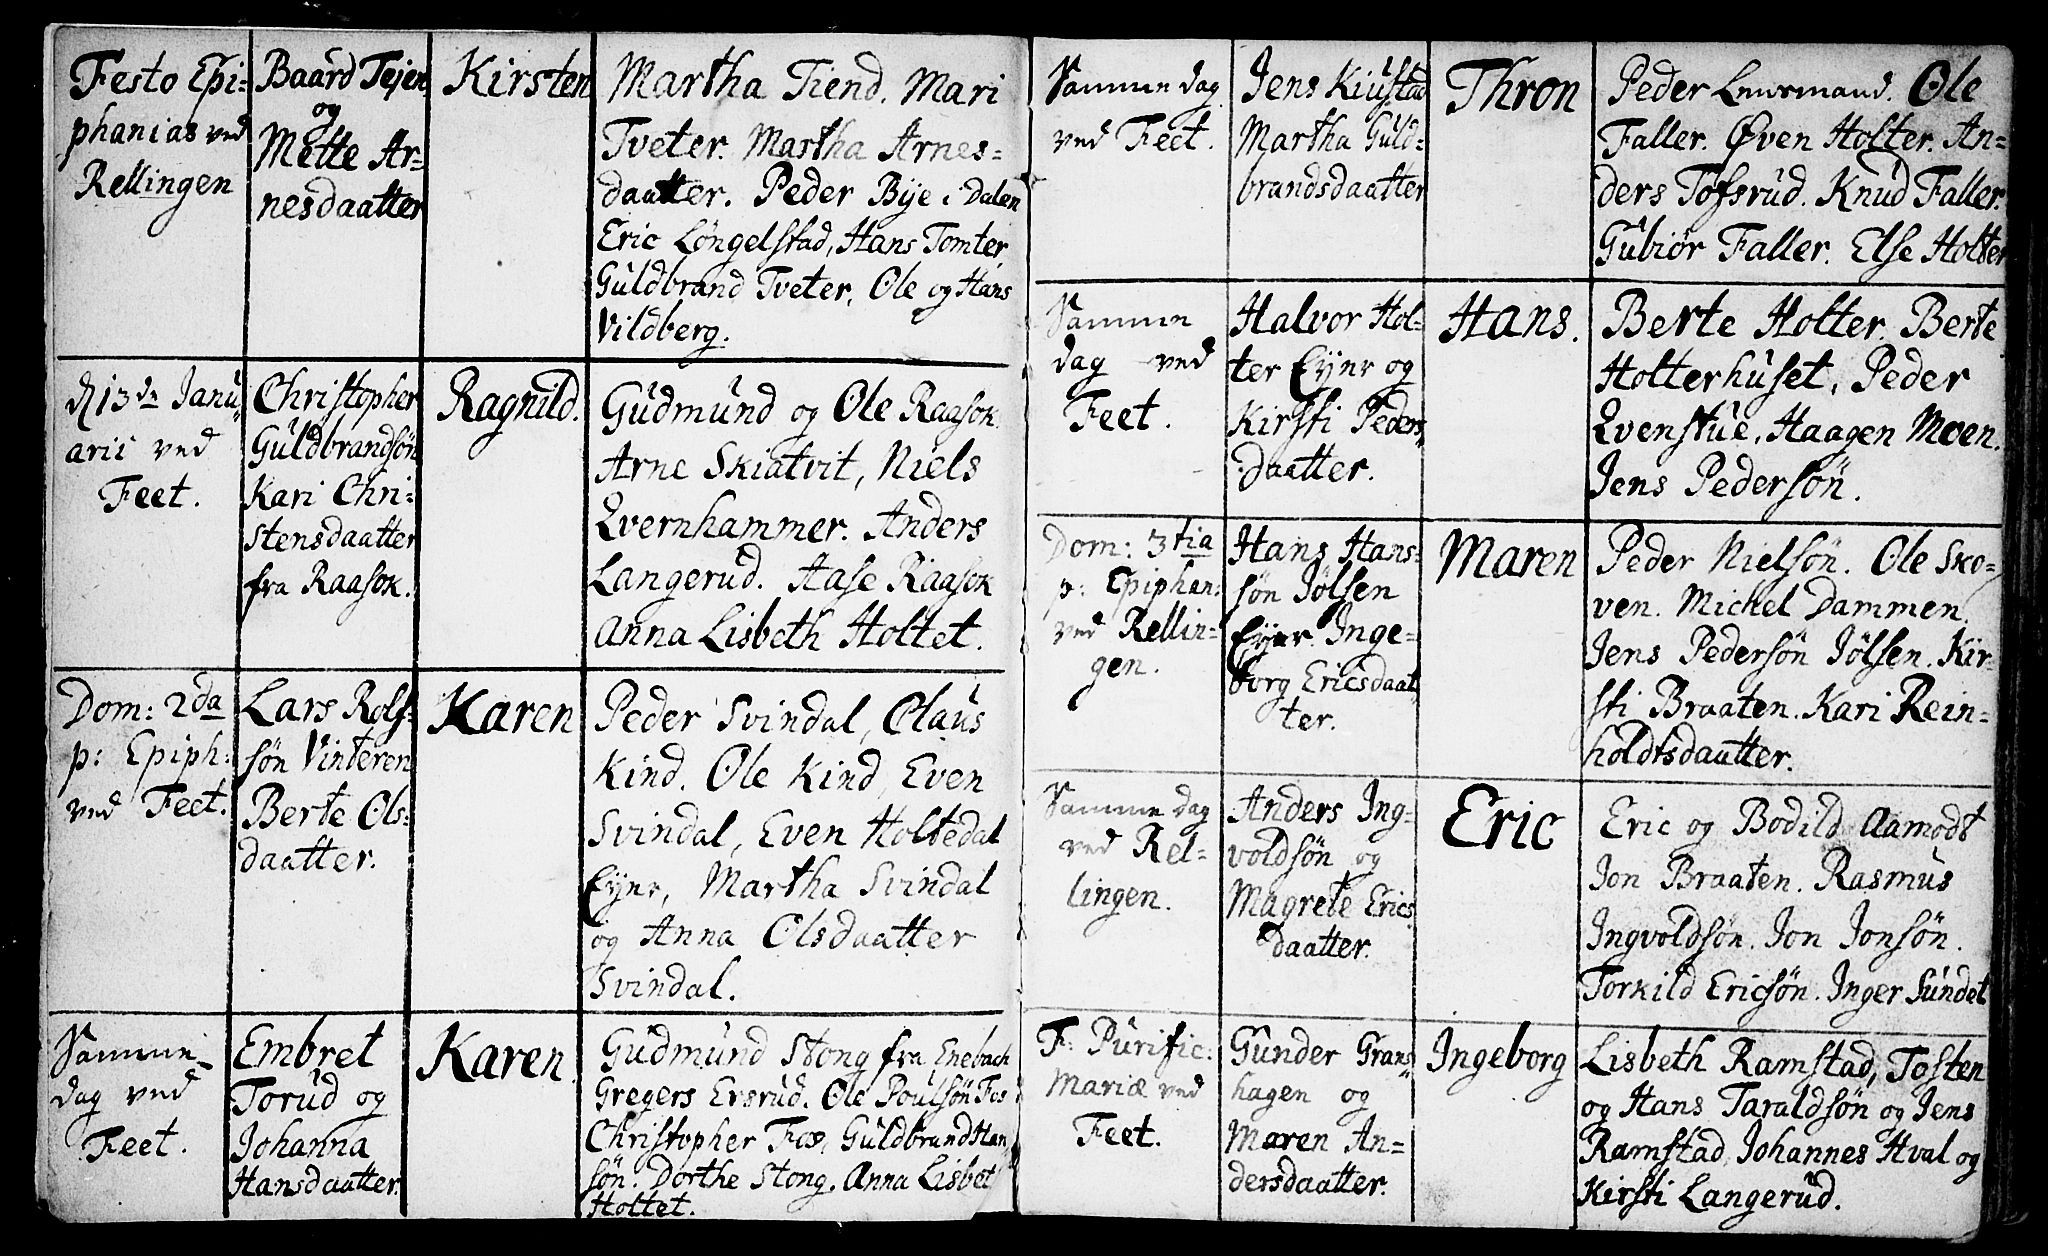 Festo Epi-
phanias ved
Rellingen
Baard Tejen
og
Mette Ar-
nesdaatter
Kirsten
Martha Tiend. Mari
Tveter. Martha Arnes-
daatter. Peder Bÿe i Dalen
Eric Löngelstad, Hans Tomter,
Guldbrand Tveter, Ole og Hans
Vildberg.
13de Janu-
arii ved
Feet.
Christopher
Guldbrandsön
Kari Chri-
stensdaatter
fra Raasok.
Ragnild.
Gudmund og Ole Raasok.
Arne Skiatvit, Niels
Qvernhammer. Anders
Langerud. Aase Raasok
Anna Lisbeth Holtet.
Dom: 2da
p: Epiph:
ved Feet.
Lars Rolf-
sön Vinteren
Berte Ols-
daatter.
Karen
Peder Svindal, Olaus
Kind. Ole Kind, Even
Svindal, Even Holtedal
Eÿer, Martha Svindal
og Anna Olsdaatter
Svindal.
Samme
dag ved
Feet.
Embret
Torud og
Johanna
Hansdaatter.
Karen.
Gudmund Stong fra Enebach
Gregers Ersrud. Ole Poulsön Fos
Christopher Fos, Guldbrand Han-
sön. Dorthe Stong. Anna Lisbet
Holtet.
Samme dag
ved Feet.
Jens Kiustad
Martha Guld-
brandsdaatter
Thron
Peder Ole
Faller. Öven Holter. An-
ders Tofsrud. Knud Faller.
Gubiör Faller. Else Holter
Samme
dag ved
Feet.
Halvor Hol-
ter Eÿer og
Kirsti Peders-
daatter.
Hans.
Berte Holter. Berte
Holterhuset, Peder
Evenstue, Haagen Moen.
Jens Pedersön.
Dom: 3tia
p: Epiphan:
ved Rellin-
gen.
Hans Hans-
sön Jölsen
Eÿer. Inge-
borg Ericsdaat-
ter.
Maren
Peder Nielsön. Ole Sko-
ven. Michel Dammen.
Jens Pedersön Jölsen. Kir-
sti Braaten. Kari Rein-
holdtsdaatter.
Samme dag
ved Rel-
lingen.
Anders Ing-
voldsön og
Magrete Erics
daatter.
Eric
Eric og Bodild Aamodt
Jon Braaten. Rasmus
Ingvoldsön. Jon Jonsön.
Torkild Ericsön. Inger Sundet
F: Purific:
Mariæ ved
Feet.
Gunder Grans-
hagen og
Maren An-
dersdaatter.
Ingeborg
Lisbeth Ramstad, Tosten
og Hans Taraldsön og Jens
Ramstad, Johannes Hval og
Kirsti Langerud.